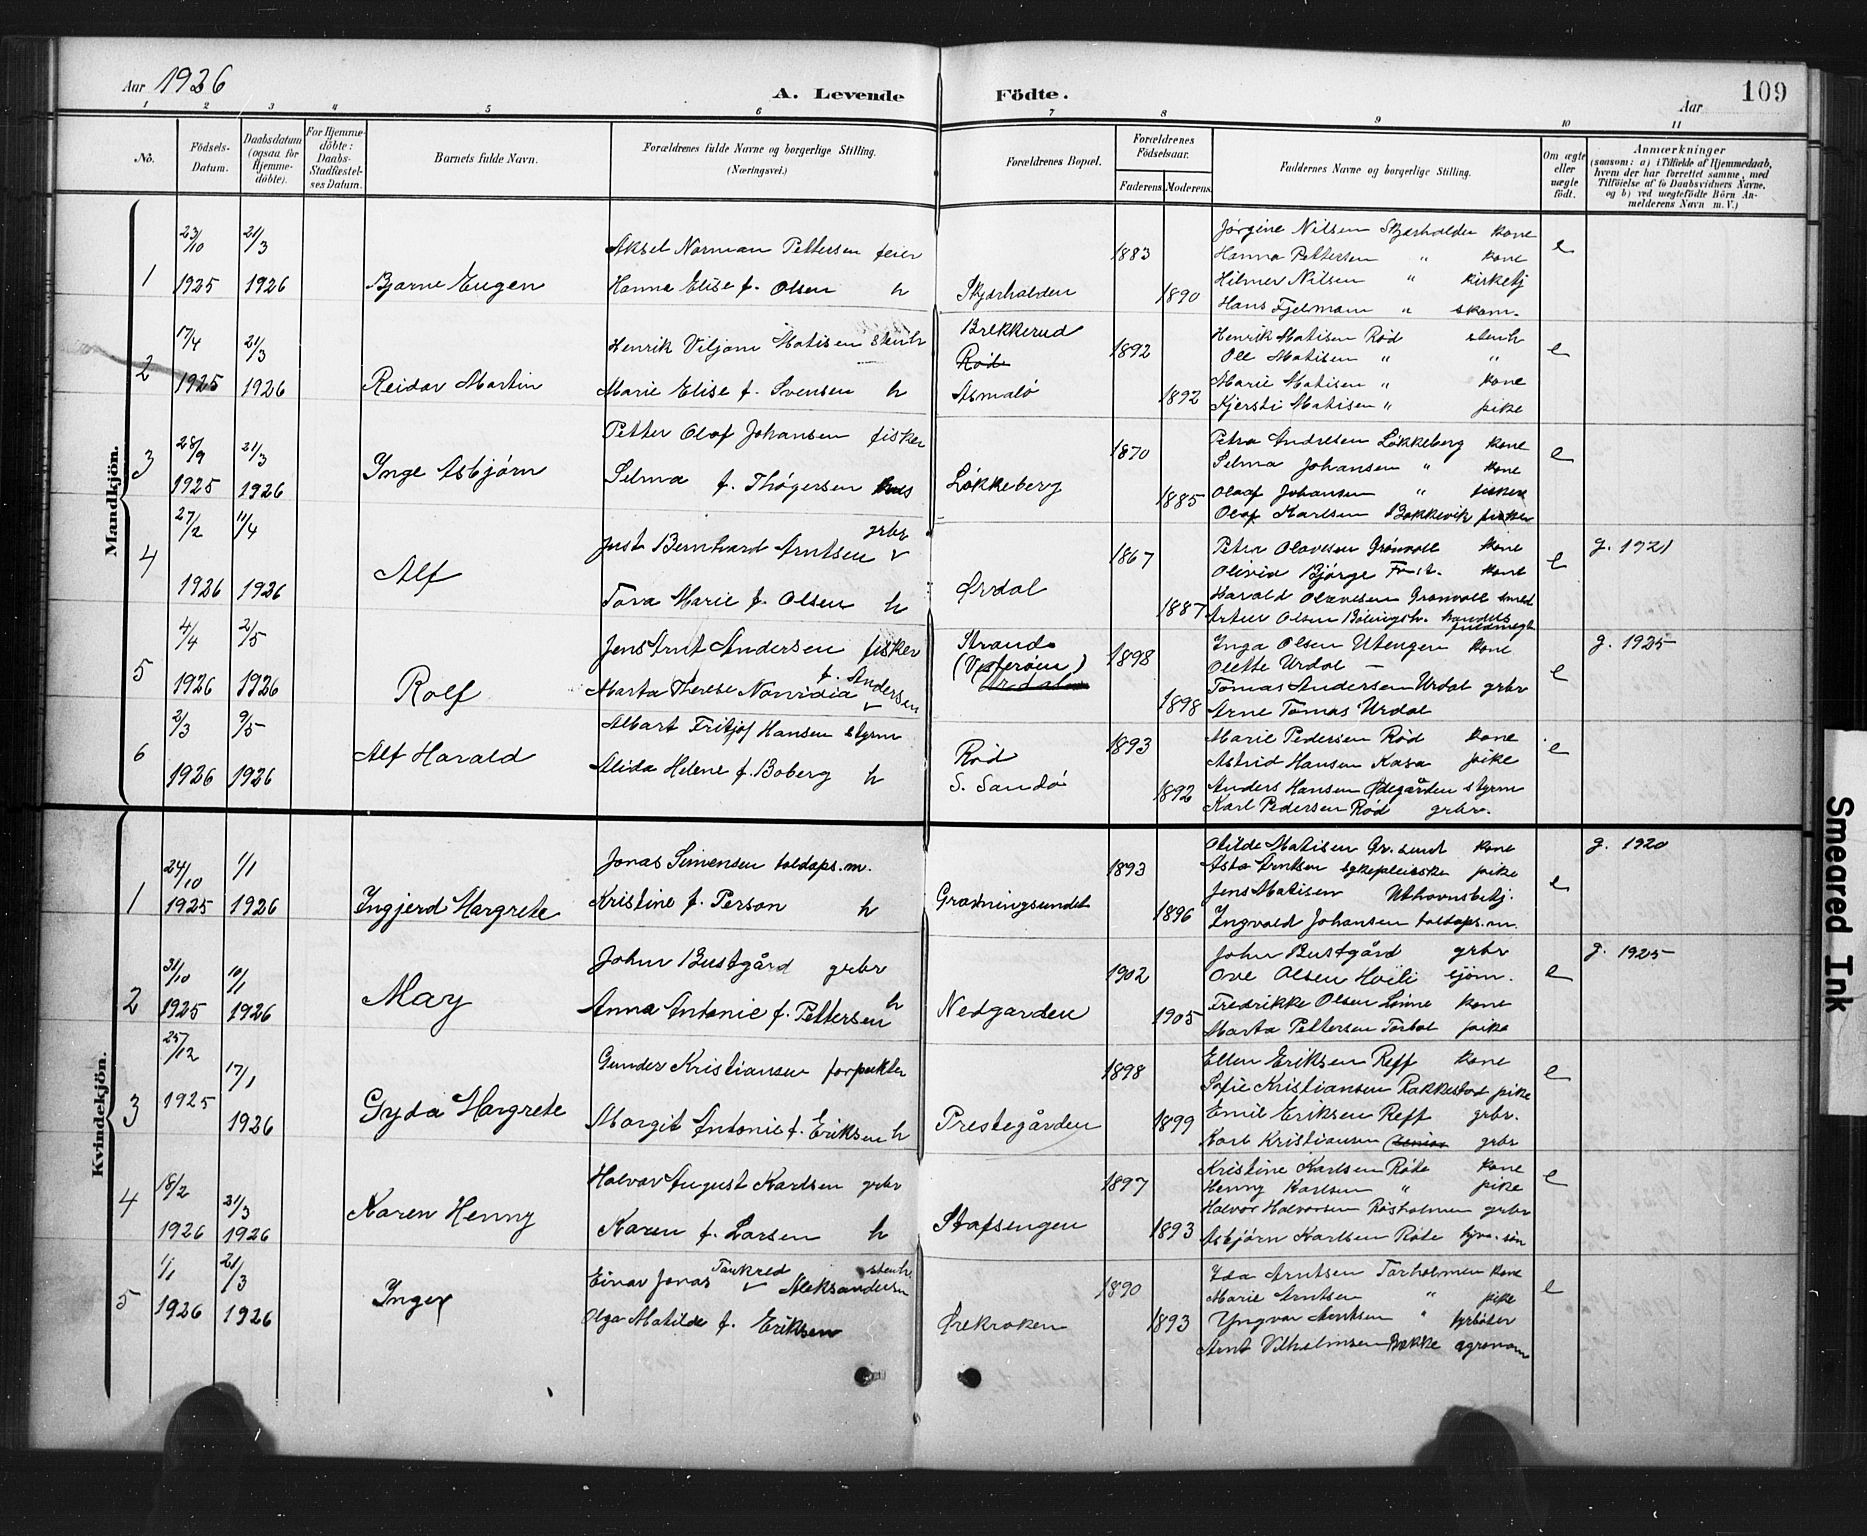 Aar 1926
A. Levende Födte.
Aar
109
1 2 3 4 5 6 7 8 9 10 11
No.
Födsels-Datum.
Daabsdatum (ogsaa for Hjemme-döbte).
For Hjemme-döbte: Daabs-Stadfæstel-ses Datum.
Barnets fulde Navn.
Forældrenes fulde Navne og borgerlige Stilling. (Næringsvei.)
Forældrenes Bopæl.
Forældrenes Födselsaar.
Faderens.
Moderens.
Faddernes Navne og borgerlige Stilling.
Om ægte eller uægte födt.
Anmærkninger (saasom: a) i Tilfælde af Hjemmedaab, hvem der har forrettet samme, med Tilföielse af to Daabsvidners Navne, og b) ved uægtefödte Börn An-melderens Navn m. V.)
Mandkjön.
1 23/10 1925 21/3 1926 Bjarne Eugen
Aksel Norman Pettersen feier
Hanna Elise f. Olsen h
Skjærhalden 1883 1890
Jørgine Nilsen Skjærhalden kone
Hanna Pettersen " kone
Hilmer Nilsen " kirketj
Hans Fjelmann " skom.
e
2 17/4 1925 21/3 1926 Reidar Martin
Henrik Viljam Matisen stenh
Marie Elise f. Svensen h
Brekkerud
Rød
Asmalø
1892 1892
Henrik Matisen Rød stenh
Ole Matisen " "
Marie Matisen " kone
Kjersti Matisen " pike
e
3 28/9 1925 21/3 1926 Inge Asbjørn
Petter Olaf Johansen fisker
Selma f. Thøgersen
Løkkeberg 1870 1885
Petra Andresen Løkkeberg kone
Selma Johansen " kone
Olaf Johansen " fisker
Olaf Karlsen Bakkevik fisker
e
4 27/2 1926 11/4 1926 Alf
Just Bernhard Arntsen grbr
Tora Marie f. Olsen h
Ørdal 1867 1887
Petra Olavesen Grønvoll kone
Olivia Bjørge Fr.st. kone
Harald Olavesen Grønvoll smed
Artur Olsen handels fuldmegt
e
g. 1921
5 4/4 1926 2/5 1926 Rolf
Jens Arnt Andersen fisker
Marta Therese Nanvidia f. Andersen
Strand
(Vesterøen)
1898 1898
Inga Olsen Utengen kone
Olette Urdal —
Tomas Andersen Urdal grbr
Arne Tomas Urdal
e
g. 1925
6 2/3 1926 9/5 1926 Alf Harald
Albart Fritjof Hansen styrm
Alida Helene f. Boberg h
Rød
S. Sandø
1893 1892
Marie Pedersen Rød kone
Astrid Hansen Kasa pike
Anders Hansen Ødegården styrm
Karl Pedersen Rød grbr.
e
Kvindekjön.
1 24/10 1925 1/1 1926 Ingjerd Margrete
Jonas Simensen toldops.m.
Kristine f. Person h
Gravningsundet 1893 1896
Otilde Matisen Gr.sund kone
Asta Arntsen sykepleierske pike
Jens Matisen
Ingvald Johansen toldops.m.
e
g. 1920
2 31/10 1925 10/1 1926 May
John Bustgård grbr
Anna Antonie f. Pettersen h
Nedgarden 1902 1905
John Bustgård grbr
Ove Olsen Hvili sjøm.
Fredrikke Olsen Linne kone
Marta Pettersen Torbal pike
e
g. 1925
3 25/12 1925 17/1 1926 Gyda Margrete
Gunder Kristiansen forpakter
Margit Antonie f. Eriksen h
Prestegården 1898 1899
Ellen Eriksen Reff kone
Sofie Kristiansen Rakkestad pike
Emil Eriksen Reff grbr.
Karl Kristiansen grbr
e
4 18/2 1926 21/3 1926 Karen Henny
Halvor August Karlsen grbr
Karen f. Larsen h
Stafsengen 1897 1893
Kristine Karlsen Røte kone
Henny Karlsen " pike
Halvor Halvorsen Røsholmen grbr
Asbjørn Karlsen Røte
e
5 1/1 1926 21/3 1926 Inger
Einar Jonas Tankred Aleksandersen stenh
Olga Matilde f. Eriksen
Ørekroken 1890 1893
Ida Arntsen Tarholmen kone
Marie Arntsen " pike
Yngvar Arntsen " fyrbøter
Arnt Vilhelmsen Bakke agronom
e
Smeared Ink